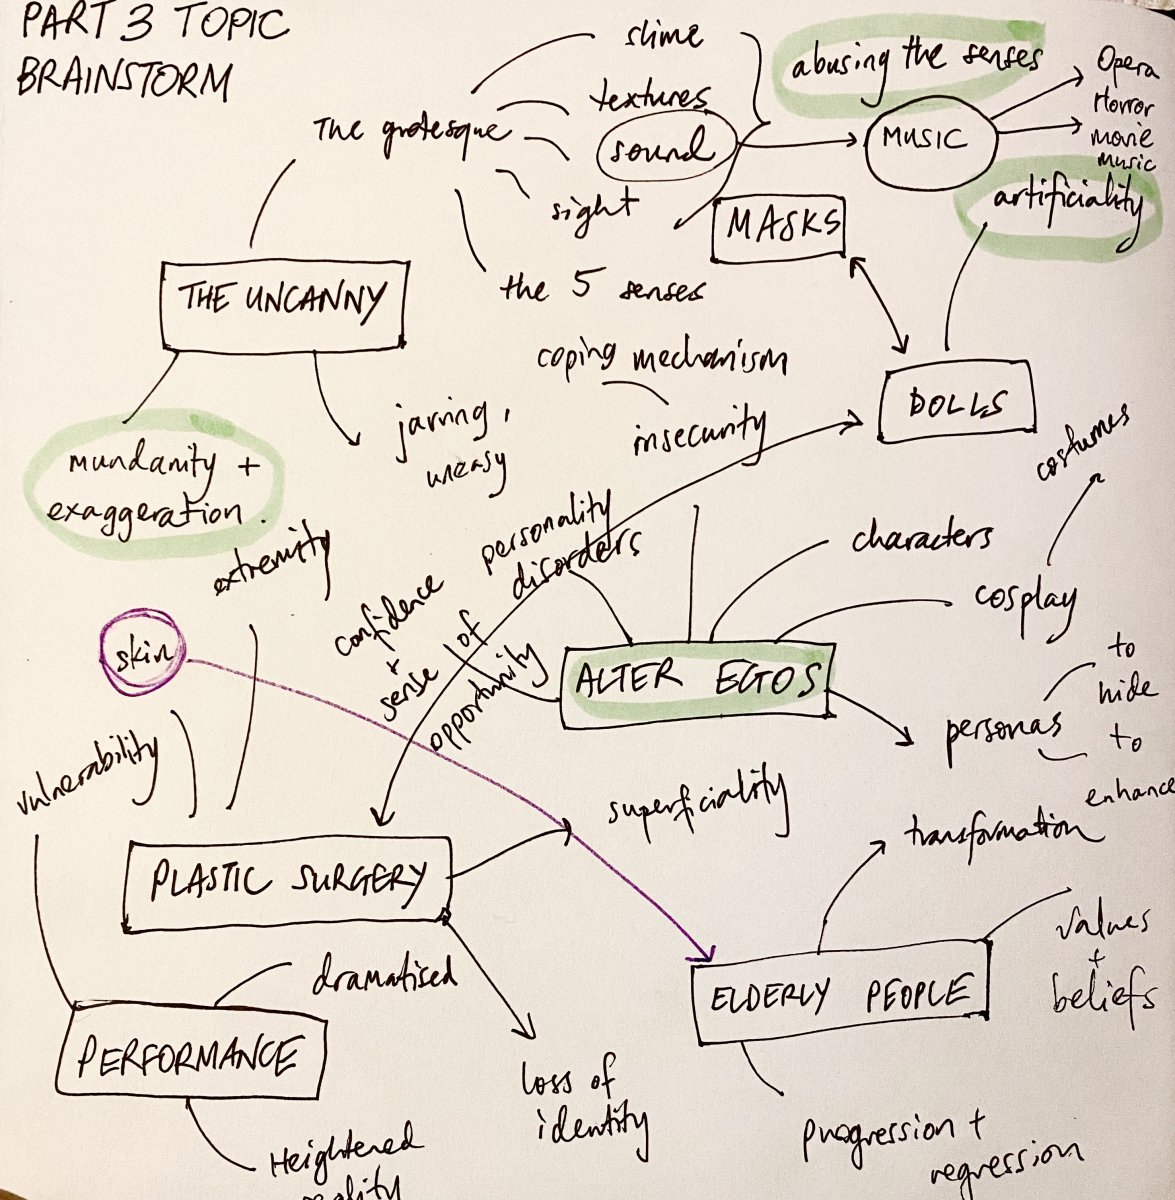 PART 3 TOPIC
BRAINSTORM
The grotesque
slime
textures
sound
sight
the 5 senses
abusing the senses
MUSIC
Opera
Horror
movie
music
artificiality
MASKS
THE UNCANNY
coping mechanism
insecurity
DOLLS
jarring,
uneasy
mundanity +
exaggeration.
extremity
personality
disorders
confidence
+
sense of
opportunity
characters
cosplay
costumes
skin
ALTER EGOS
personas
to
hide
to
enhance
vulnerability
superficiality
transformation
PLASTIC SURGERY
values
+
beliefs
dramatised
ELDERLY PEOPLE
PERFORMANCE
loss of
identity
progression +
regression
Heightened
reality